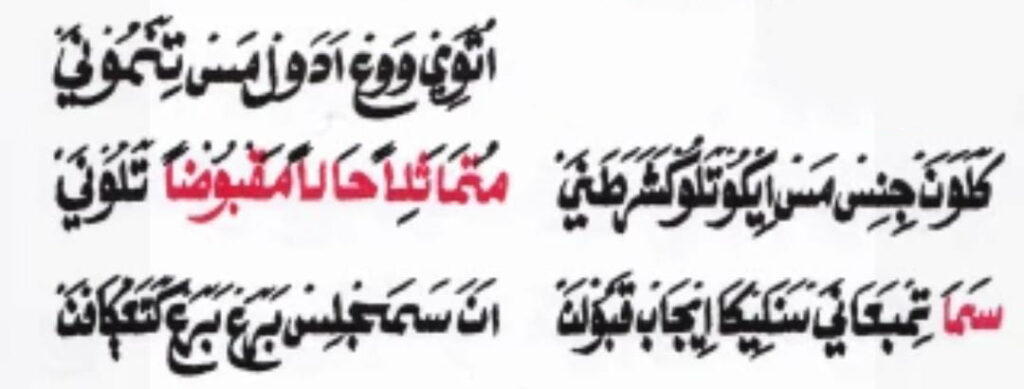 اُتَوِيْ وَوڠْ اَدَوَلْ مَسْ تِنَمُوْنَيْ
كَلَوَنْ جِنِسْ مَسْ اِيْكُوْ تَلُوْ كَشَرَطَنَيْ مُتَمَاثِلًا حَالًا مَقْبُوْضًا تَلُوْنَيْ
سَمَا تِمْبَڠَانَيْ سَنَلِيْكَا اِيْجَابْ قَبُوْلَنْ اَنَ سَمَجْلِسْ بَرَڠْ بَرَڠْ كَتَڠْكَافَنْ